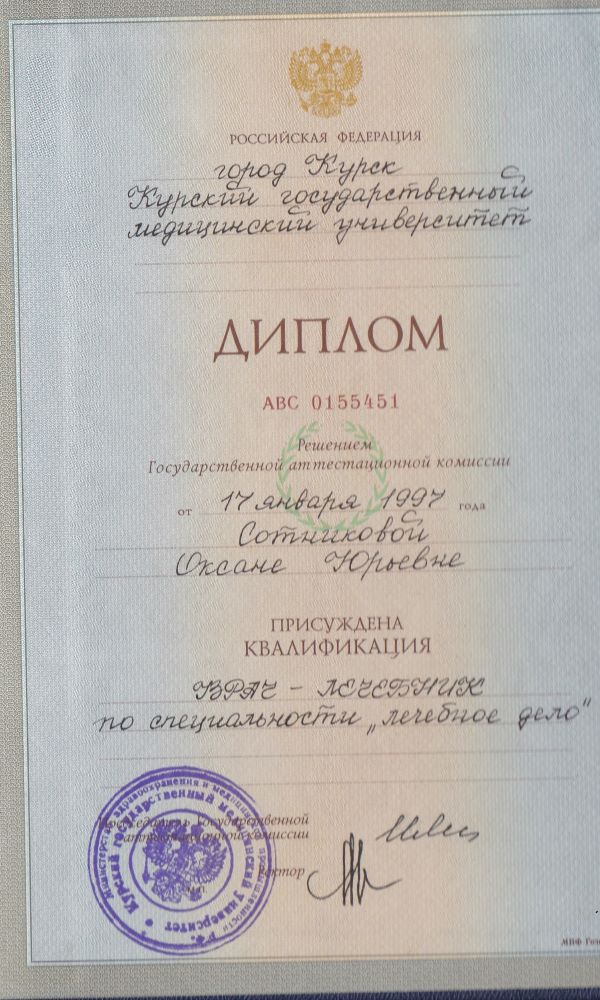 РОССИЙСКАЯ ФЕДЕРАЦИЯ
город Курск
Курский государственный
медицинский университет
ДИПЛОМ
АВС 0155451
Решением
Государственной аттестационной комиссии
от 17 января 1997 года
Сотниковой
Оксане Юрьевне
ПРИСУЖДЕНА
КВАЛИФИКАЦИЯ
ВРАЧ - ЛЕЧЕБНИК
по специальности „лечебное дело"
Председатель Государственной
аттестационной комиссии
Ректор
М.П.
Министерство здравоохранения и медицинской промышленности РФ
Курский государственный медицинский Университет
МПФ